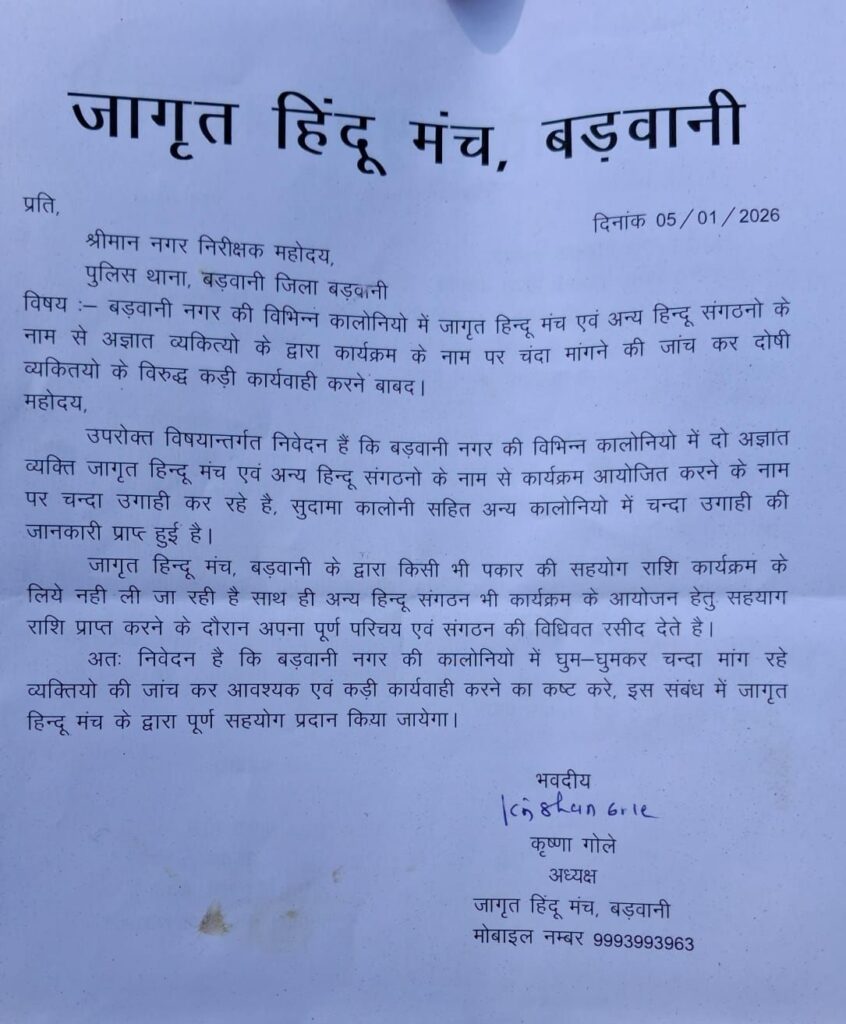 जागृत हिंदू मंच, बड़वानी
प्रति,
दिनांक 05/01/2026
श्रीमान नगर निरीक्षक महोदय,
पुलिस थाना, बड़वानी जिला बड़वानी
विषय :– बड़वानी नगर की विभिन्न कालोनियो में जागृत हिन्दू मंच एवं अन्य हिन्दू संगठनो के
नाम से अज्ञात व्यकित्यो के द्वारा कार्यक्रम के नाम पर चंदा मांगने की जांच कर दोषी
व्यकितयो के विरुद्ध कड़ी कार्यवाही करने बाबद।
महोदय,
उपरोक्त विषयान्तर्गत निवेदन हैं कि बड़वानी नगर की विभिन्न कालोनियो में दो अज्ञात
व्यक्ति जागृत हिन्दू मंच एवं अन्य हिन्दू संगठनो के नाम से कार्यक्रम आयोजित करने के नाम
पर चन्दा उगाही कर रहे है, सुदामा कालोनी सहित अन्य कालोनियो में चन्दा उगाही की
जानकारी प्राप्त हुई है।
जागृत हिन्दू मंच, बड़वानी के द्वारा किसी भी पकार की सहयोग राशि कार्यक्रम के
लिये नही ली जा रही है साथ ही अन्य हिन्दू संगठन भी कार्यक्रम के आयोजन हेतु सहयाग
राशि प्राप्त करने के दौरान अपना पूर्ण परिचय एवं संगठन की विधिवत रसीद देते है।
अतः निवेदन है कि बड़वानी नगर की कालोनियो में घुम–घुमकर चन्दा मांग रहे
व्यक्तियो की जांच कर आवश्यक एवं कड़ी कार्यवाही करने का कष्ट करे, इस संबंध में जागृत
हिन्दू मंच के द्वारा पूर्ण सहयोग प्रदान किया जायेगा।
भवदीय
कृष्णा गोले
अध्यक्ष
जागृत हिंदू मंच, बड़वानी
मोबाइल नम्बर 9993993963